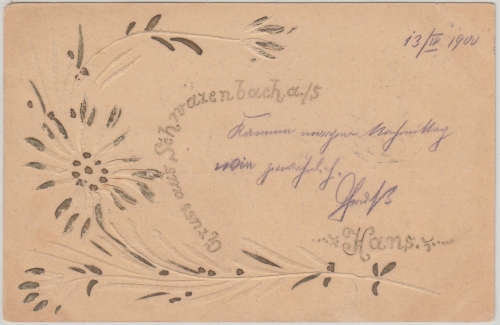 13/IV 1900
Gruss aus Schwarzenbach a./S
Komme morgen Nachmittag
wie gewöhnlich.
Gruß
Hans.